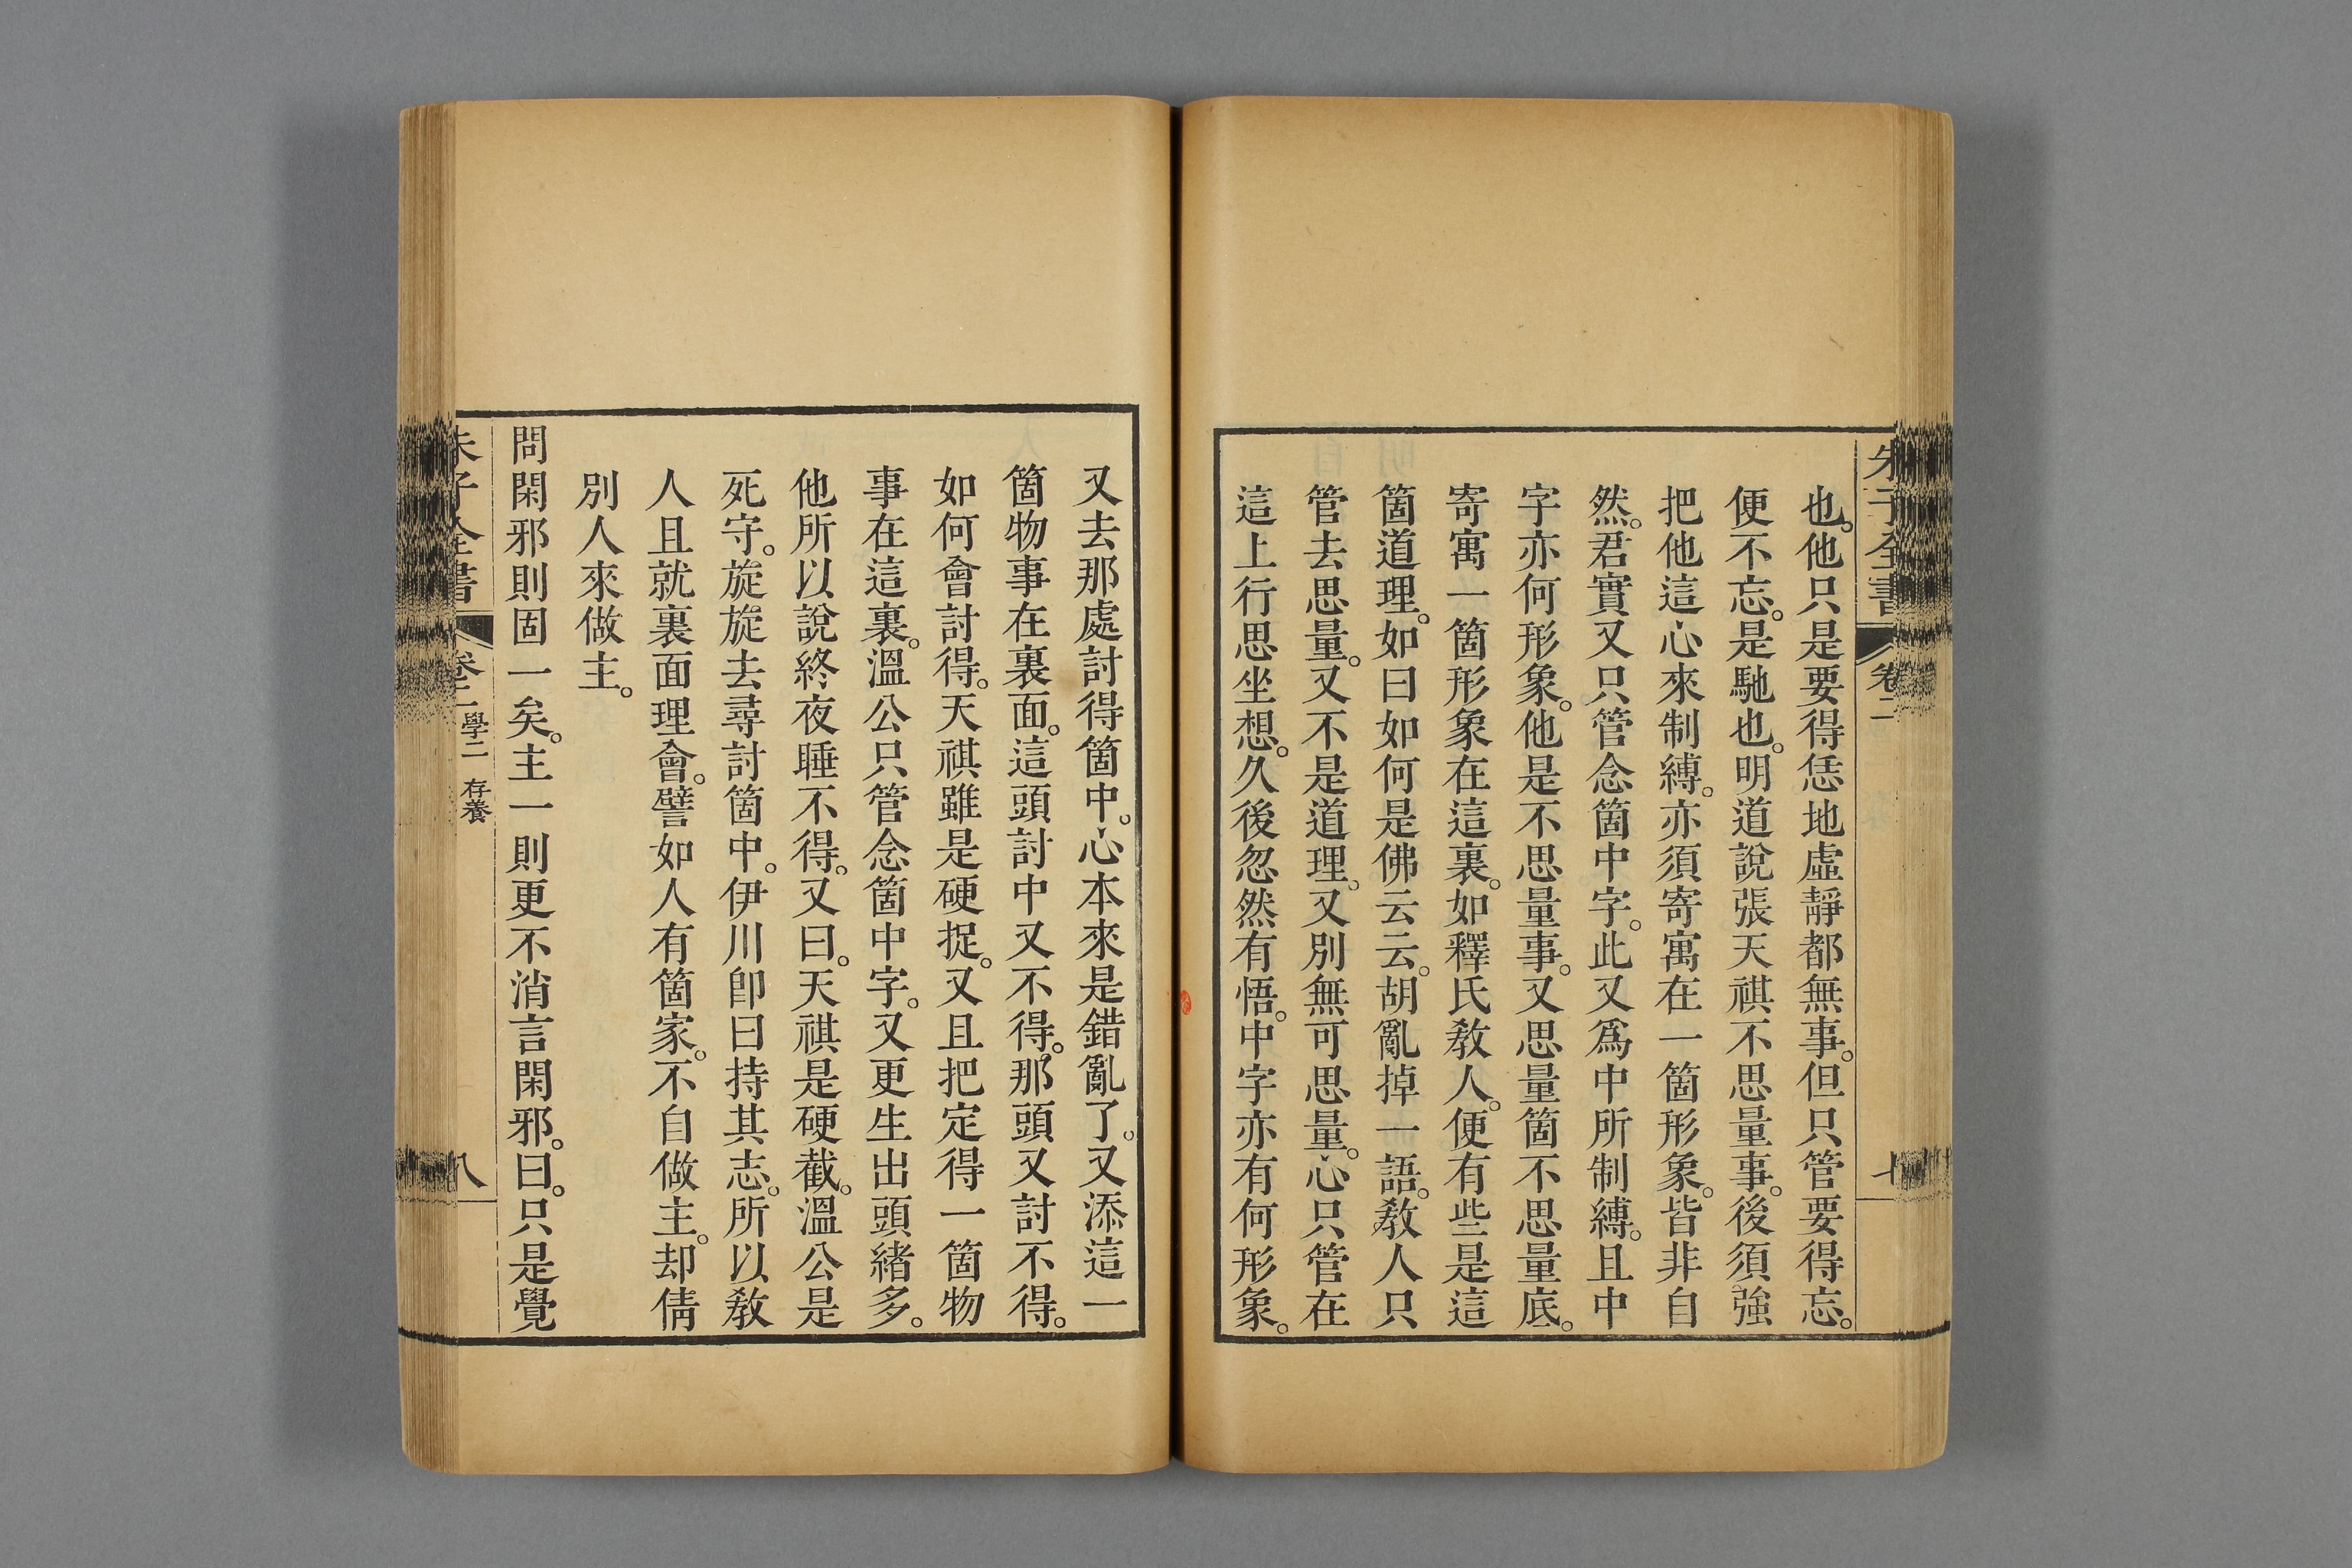 朱子全書 卷二
七
也。他只是要得恁地虛靜都無事。但只管要得忘。
便不忘。是馳也。明道說張天祺不思量事。後須強
把他這心來制縛。亦須寄寓在一箇形象。皆非自
然。君實又只管念箇中字。此又爲中所制縛。且中
字亦何形象。他是不思量事。又思量箇不思量底。
寄寓一箇形象在這裏。如釋氏教人。便有些是這
箇道理。如曰如何是佛云云。胡亂掉一語。教人只
管去思量。又不是道理。又別無可思量。心只管在
這上行思坐想。久後忽然有悟。中字亦有何形象。
又去那處討得箇中。心本來是錯亂了。又添這一
箇物事在裏面。這頭討中又不得。那頭又討不得。
如何會討得。天祺雖是硬捉。又且把定得一箇物
事在這裏。溫公只管念箇中字。又更生出頭緒多。
他所以說終夜睡不得。又曰。天祺是硬截。溫公是
死守。旋旋去尋討箇中。伊川卽曰持其志。所以教
人且就裏面理會。譬如人有箇家。不自做主。却倩
別人來做主。
問閑邪則固一矣。主一則更不消言閑邪。曰。只是覺
朱子全書 卷二 學二 存養
八